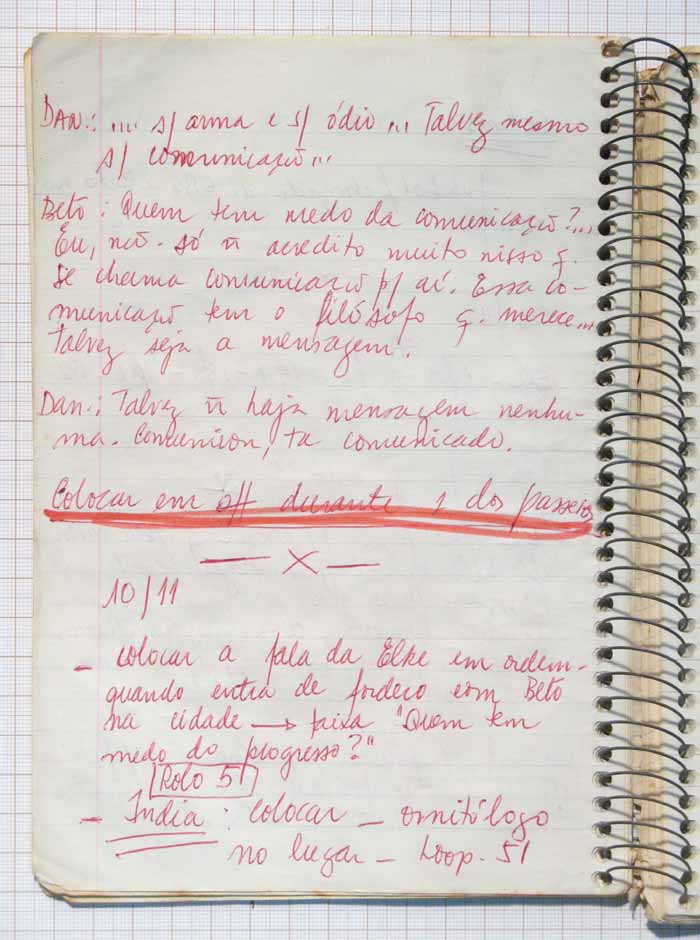 Dan.: ... s/ arma e s/ ódio ... Talvez mesmo
s/ comunicaçõ...
Beto: Quem tem medo da comunicaçõ?...
Eu, nõ. Só ñ acredito muito nisso q.
se chama comunicaçõ p/ aí. Essa co-
municaçõ tem o filósofo q. merece...
Talvez seja a mensagem.
Dan.: Talvez ñ haja mensagem nenhu-
ma. Comunicou, ta comunicado.
Colocar em off durante 1 dos passeios
— X —
10/11
- colocar a fala da Elke em ordem -
quando entra de fordeco com Beto
na cidade → faixa "Quem tem
medo do progresso?"
Rolo 5
- Índia: colocar - ornitólogo
no lugar - Loop. 51